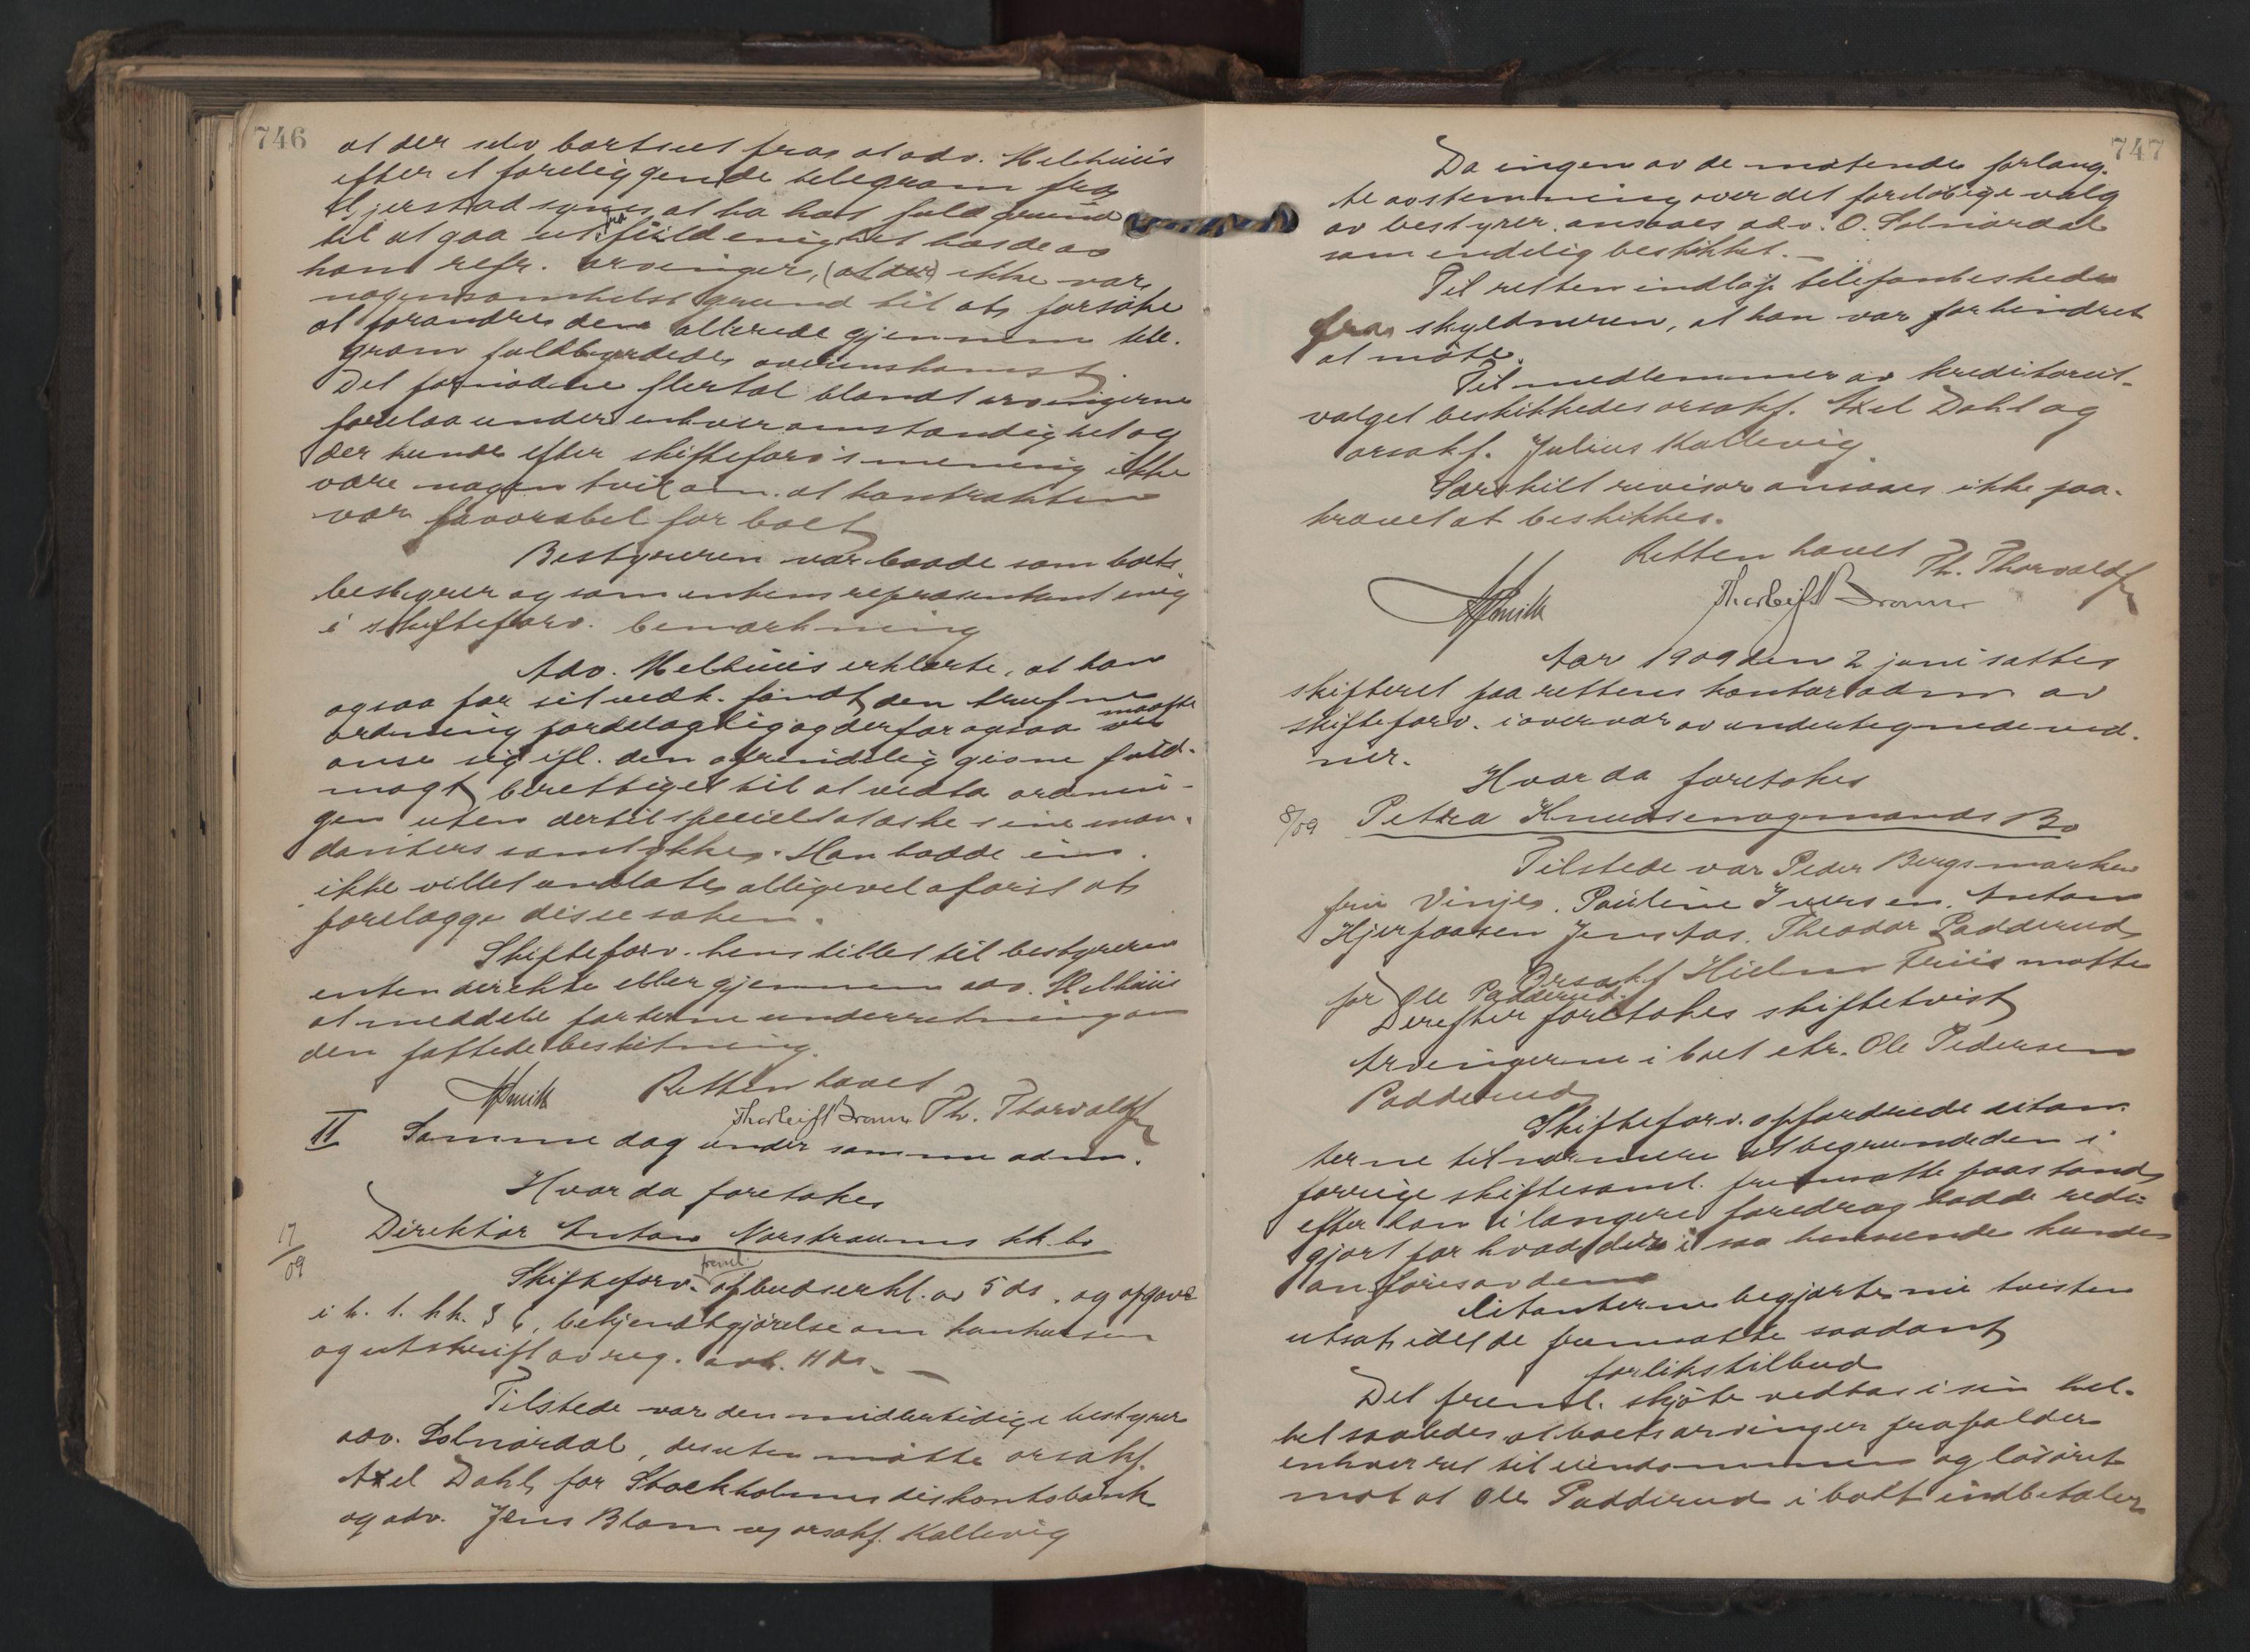 746
at der selv bortseet fra at adv. Melhuus
efter et foreliggende telegram fra
Gjerstad synes at ha hat fuld grund
til at gaa ut fra fuld enighet hos de av
ham repr. arvinger, (at der) ikke var
nogensomhelst grund til at forsøke
at forandre den allerede gjennem tele-
gram fuldbyrdede overenskomst.
Det fornødne flertal blandt arvingerne
forelaa under enhver omstændighet og
der kunde efter skifteforv's mening ikke
være nogen tvil om at kontrakten
var favorabel for boet
Bestyreren var baade som bots
bestyrer og som enkens repræsentant enig
i skifteforv. bemerkning
Adv. Melhuus erklærte, at han
ogsaa for sit vedk. fandt den trufne
ordning fordelagtig og derfor ogsaa maatte
anse sig ifl. den oprindelig givne fuld-
magt berettiget til at vedta ordnin-
gen uten dertil specielt at æske sine man-
danters samtykke. Han hadde im.
ikke villet undlate alligevel aforist at
forelægge disse saken.
Skifteforv. henstillet til bestyreren
enten direkte eller gjennem adv. Melhuus
at meddele parterne underretning om
den fattede beslutning.
Retten hævet
Thorleif Braun Th. Thorvaldsen
II Samme dag under samme adm.
Hvor da foretokes
17/09 Direktør Anton Narstraums kk. bo
Skifteforv. freml. opbudserkl. av 5 ds. og opgave
i h. t. kk. § 6, bekjendtgjørelse om konkursen
og utskrift av reg. avh. 11 ds. —
Tilstede var den midlertidige bestyrer
adv. Solnørdal, desuten møtte orsakf.
Axel Dahl for Stockholms diskontobank
og adv. Jens Blom og orsakf. Kallevig
747
Da ingen av de møtende forlang-
te avstemning over det foreløbige valg
av bestyrer ansaaes adv. O. Solnørdal
som endelig beskikket. —
Til retten indløp telefonbeskede
fra skyldneren, at han var forhindret
at møte.
Til medlemmer av kreditorut-
valget beskikkedes orsakf. Axel Dahl og
orsakf. Julius Kallevig.
Særskilt revisor ansaaes ikke paa-
krævet at beskikkes.
Retten hævet
Thorleif Braun Th. Thorvaldsen
Aar 1909 den 2 juni sattes
skifteret paa rettens kontor adm av
skifteforv. i overvær av undertegnede vid-
ner.
Hvor da foretokes
8/09 Petra Knudsen og mands Bo
Tilstede var Peder Bergsmarken
fru Vinje. Pauline Iversen. Anton
Hjerpaasen Jensfos. Theodor Padderud
Orsakf Hielm Friis møtte
for Ole Padderud.
Derefter foretokes skiftetvist
Arvingerne i boet ctr. Ole Pedersen
Padderud
Skifteforv. opfordrede citan-
terne til nærmere at begrunde den i
forrige skiftesaml. fremsatte paastand
efter han i længere foredrag hadde rede-
gjort for hvad der i saa henseende kunde
anføres av dem
Citanterne begjærte nu tvisten
utsat idet de fremsatte saadant
forlikstilbud
Det freml. skjøte vedtas i sin hel-
het saaledes at boets arvinger frafalder
enhver ret til eiendommen og løsøret
mot at Ole Padderud i boet indbetaler